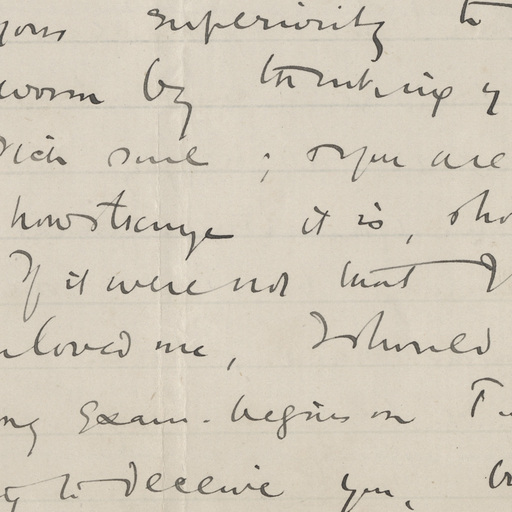 your superiority to
worm by thinking y
rich soul ; or you are
how strange it is, sho
If it were not that I
loved me, I should
ng Exam. begins on Tu
g to deceive you,